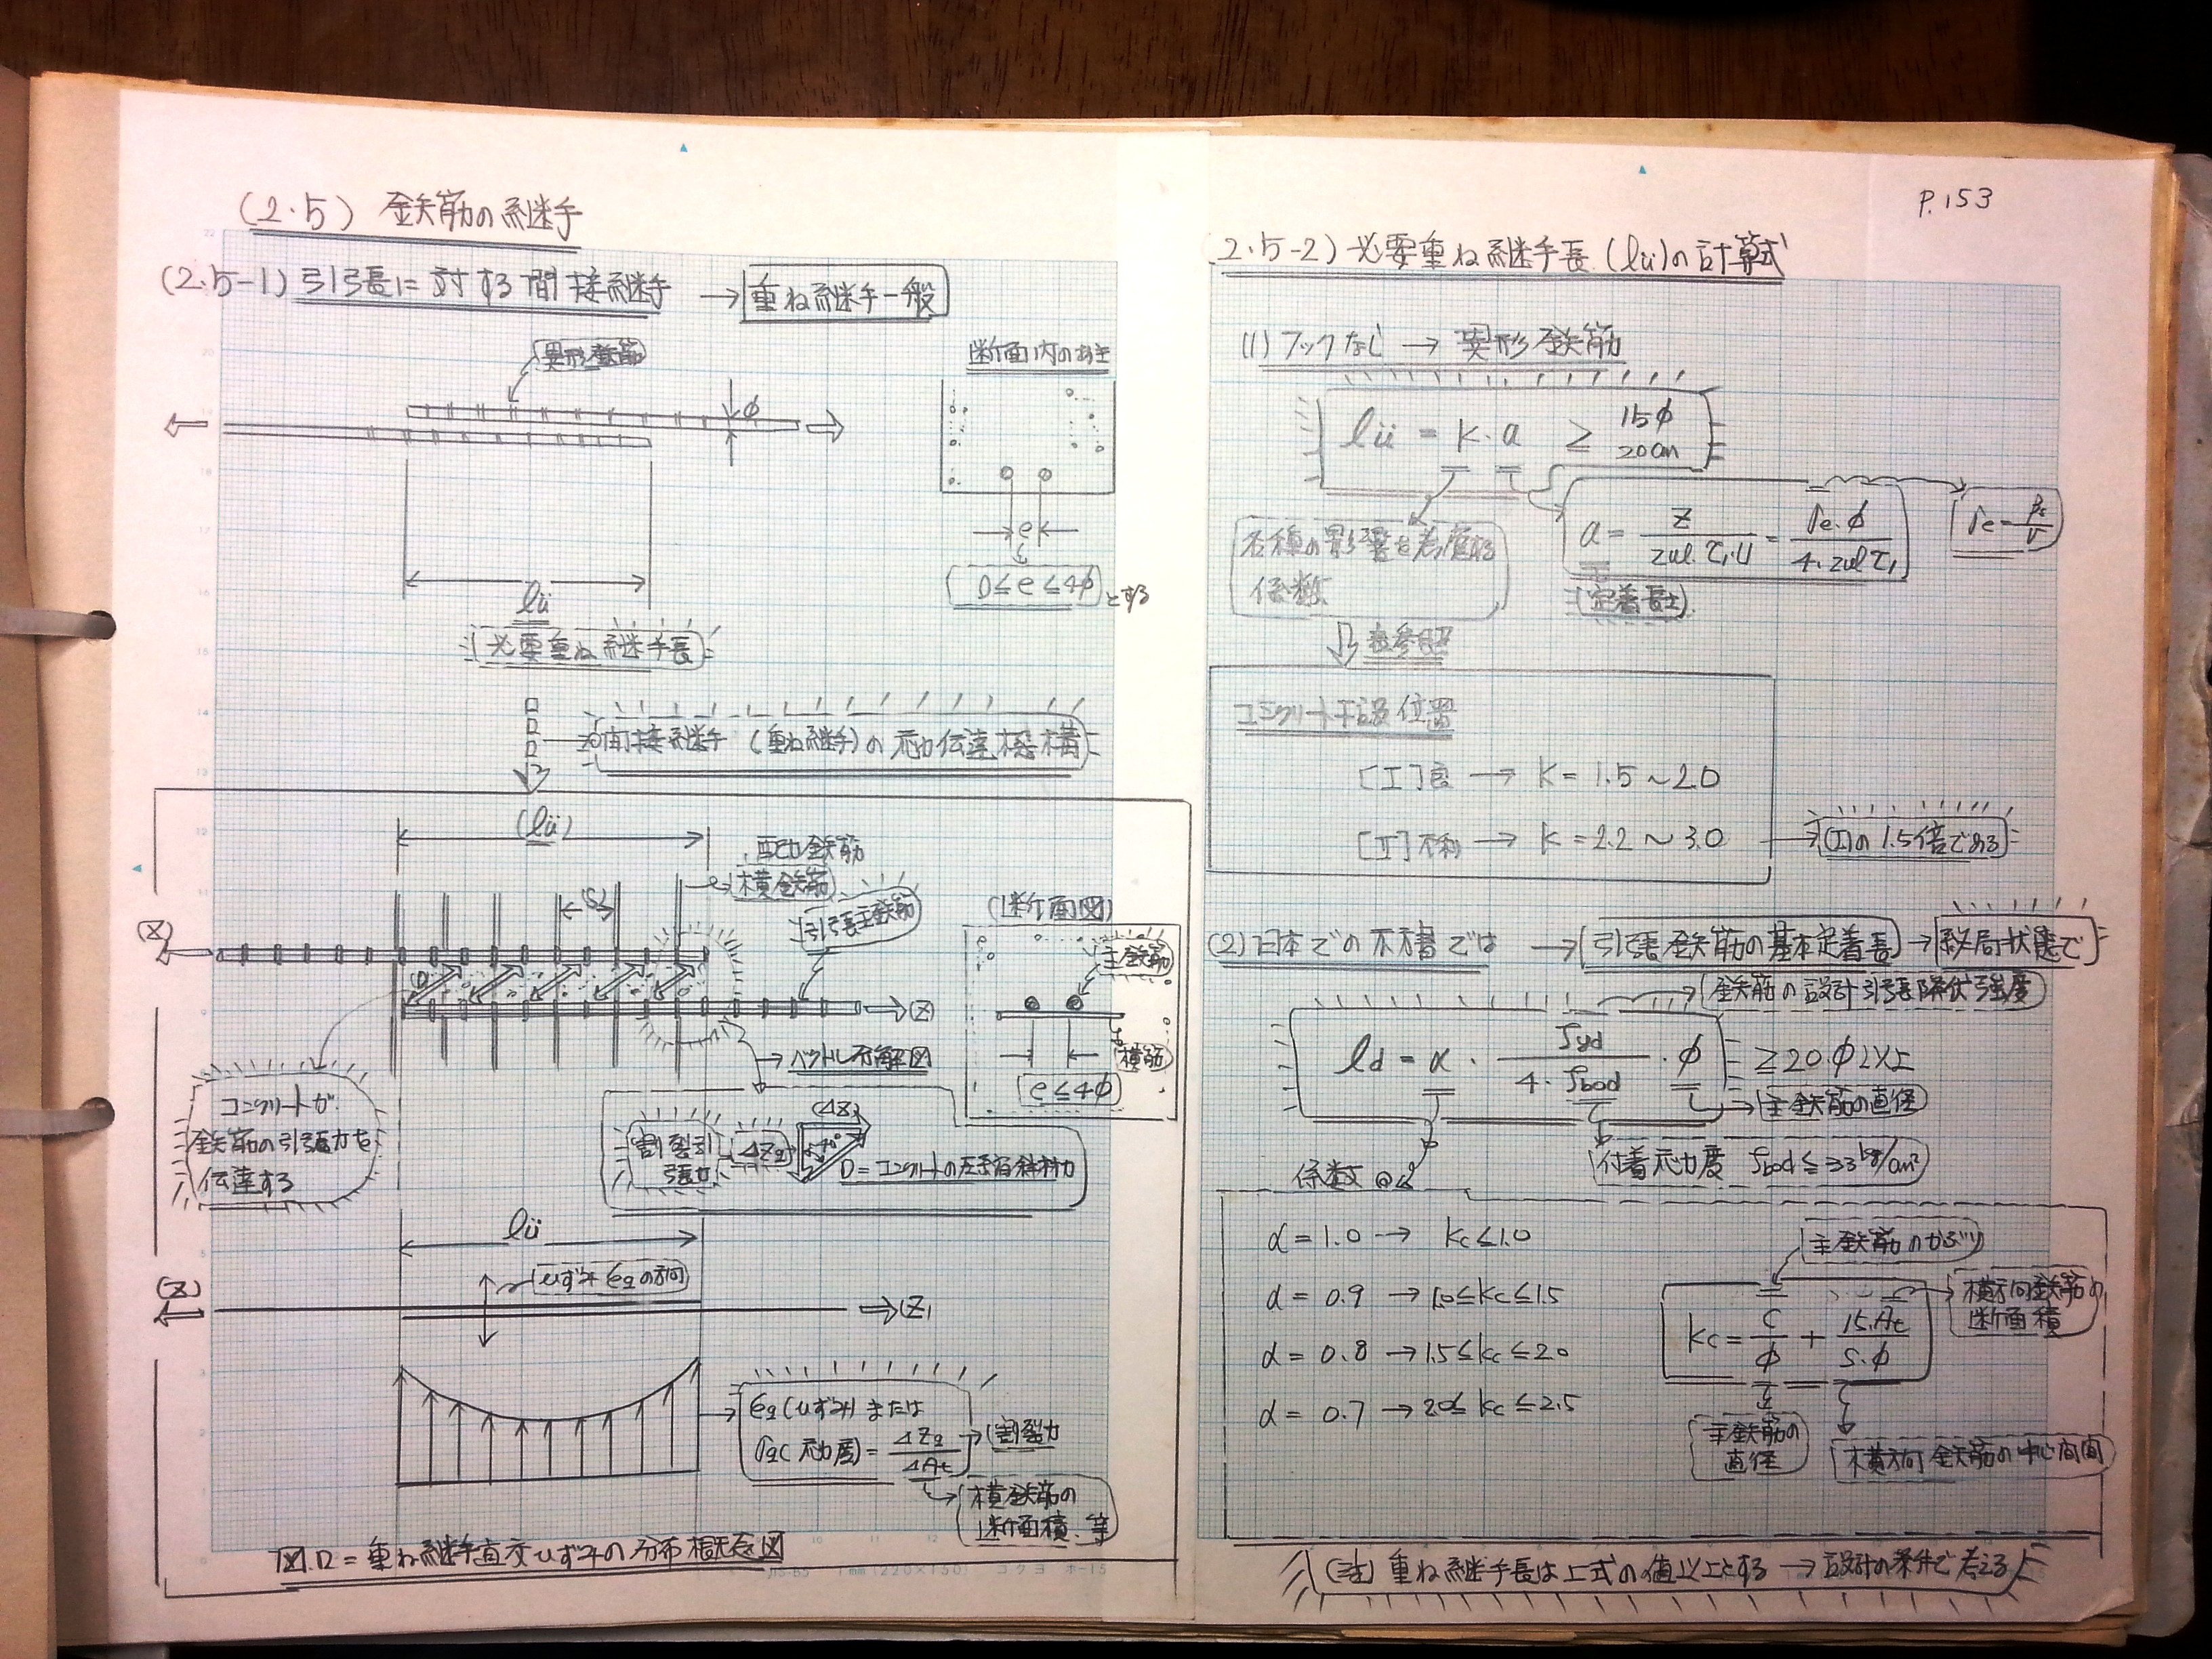 (2.5) 鉄筋の継手
(2.5-1) 引張に対する間接継手 → 重ね継手一般
異形鉄筋
φ
断面内のあき
e
0≦e≦4φ とする
lü
必要重ね継手長
間接継手 (重ね継手) の応力伝達機構
(lü)
配力鉄筋
横鉄筋
引張主鉄筋
(Z)
(Z)
(断面図)
主鉄筋
横筋
e≦4φ
ベクトル分解図
コンクリートが
鉄筋の引張力を
伝達する
割裂引
張力
ΔZq
(ΔZ)
D=コンクリートの圧縮斜材力
lü
ひずみ εqの方向
(Z)
εq (ひずみ) または
σq (応力度) = ΔZq/ΔAt
割裂力
横鉄筋の
断面積 等
重ね継手直交ひずみの分布概念図
P.153
(2.5-2) 必要重ね継手長 (lü)の計算式
(1) フックなし → 異形鉄筋
lü = K・a ≧ 15φ
20cm
各種の影響を考慮する
係数
a = Z/zul.τ₁・U = σe・φ/4・zul τ₁
σe=βs/ν
(定着長さ)
表参照
コンクリート打設位置
[I]良 → K = 1.5〜2.0
[II]不利 → K = 2.2〜3.0
(I)の1.5倍である
(2) 日本での示方書では → 引張鉄筋の基本定着長 → 終局状態で
鉄筋の設計引張降伏強度
ld = α・fyd/4・fbod・φ ≧20・φ以上
主鉄筋の直径
付着応力度 fbod≦33kg/cm²
係数
α = 1.0 → kc≦1.0
α = 0.9 → 1.0≦kc≦1.5
α = 0.8 → 1.5≦kc≦2.0
α = 0.7 → 2.0≦kc≦2.5
主鉄筋のかぶり
kc = c/φ + 15.At/s.φ
横方向鉄筋の
断面積
主鉄筋の
直径
横方向鉄筋の中心間隔
(注) 重ね継手長は上式の値以上とする → 設計の条件で考える